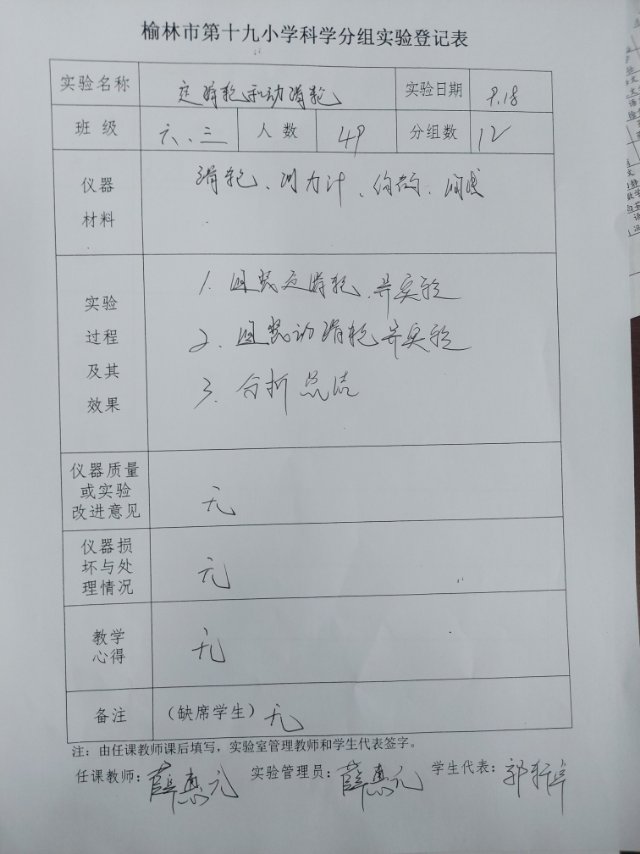 榆林市第十九小学科学分组实验登记表
实验名称 定滑轮和动滑轮 实验日期 9.18
班级 六、三 人数 49 分组数 12
仪器材料 滑轮、测力计、钩码、细线
实验过程及其效果
1. 组装定滑轮并实验
2. 组装动滑轮并实验
3. 分析总结
仪器质量或实验改进意见 无
仪器损坏与处理情况 无
教学心得 无
备注 (缺席学生) 无
注：由任课教师课后填写，实验室管理教师和学生代表签字。
任课教师：薛惠元 实验管理员：薛惠元 学生代表：郭